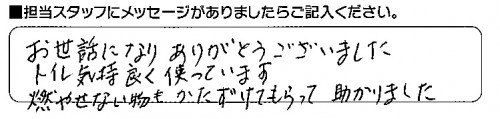 ■担当スタッフにメッセージがありましたらご記入ください。
お世話になり ありがとうございました
トイレ気持良く使っています
燃やせない物もかたずけてもらって 助かりました